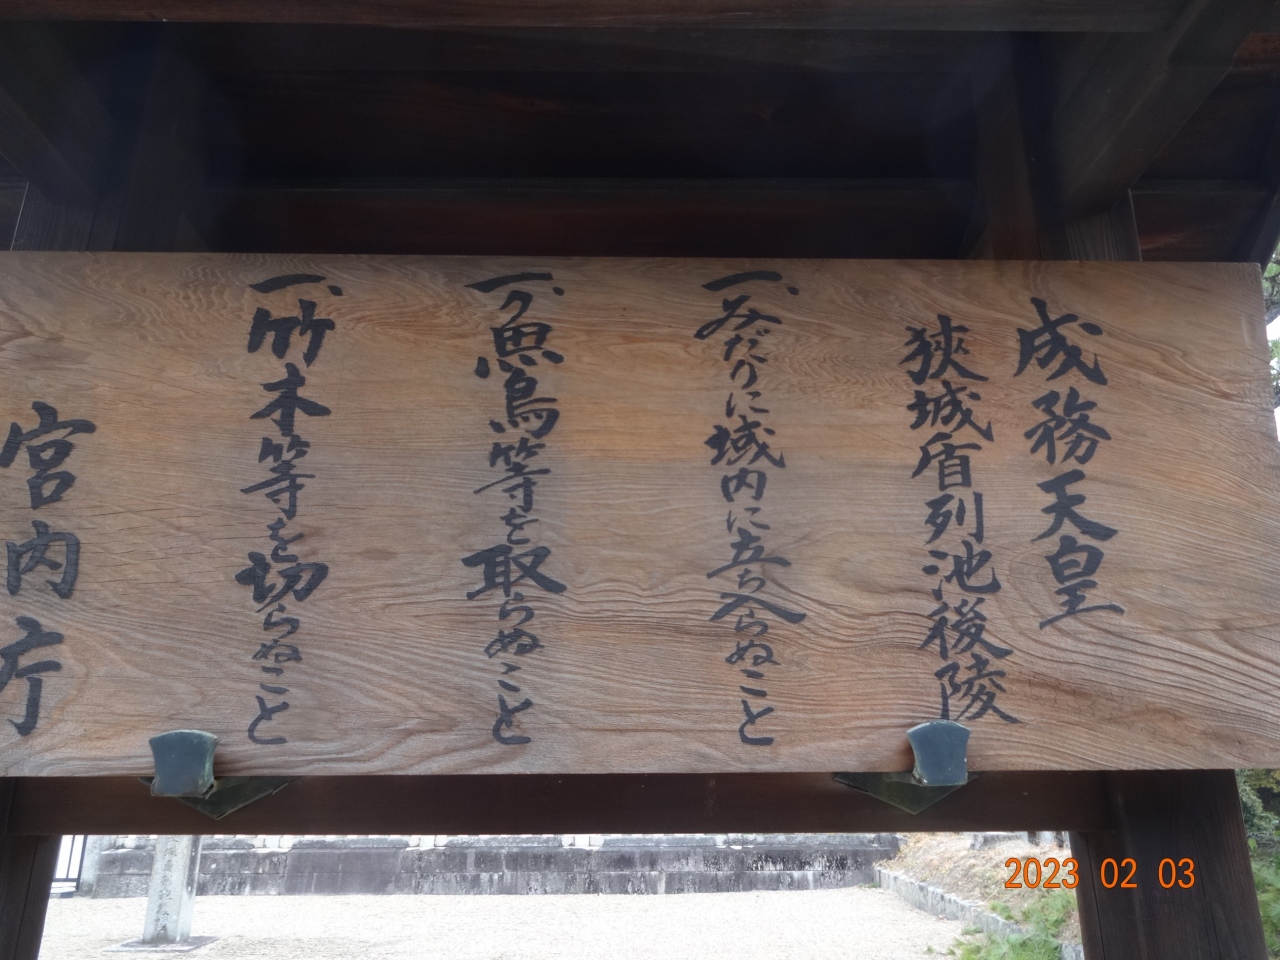 成務天皇
狹城盾列池後陵
一、みだりに域内に立ち入らぬこと
一、魚鳥等を取らぬこと
一、竹木等を切らぬこと
宮内庁
2023 02 03